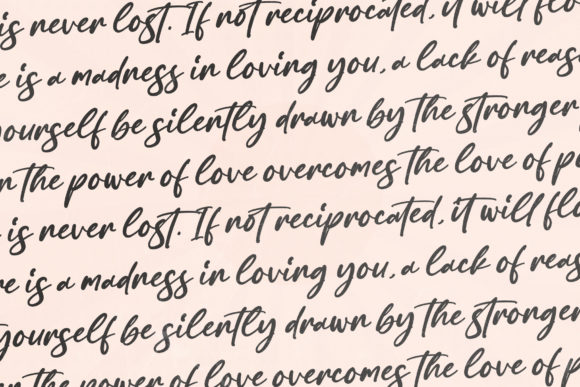 is never lost. If not reciprocated, it will flo
e is a madness in loving you, a lack of reas
yourself be silently drawn by the stronger
n the power of love overcomes the love of p
is never lost. If not reciprocated, it will flo
re is a madness in loving you, a lack of reas
yourself be silently drawn by the stronger
n the power of love overcomes the love of p